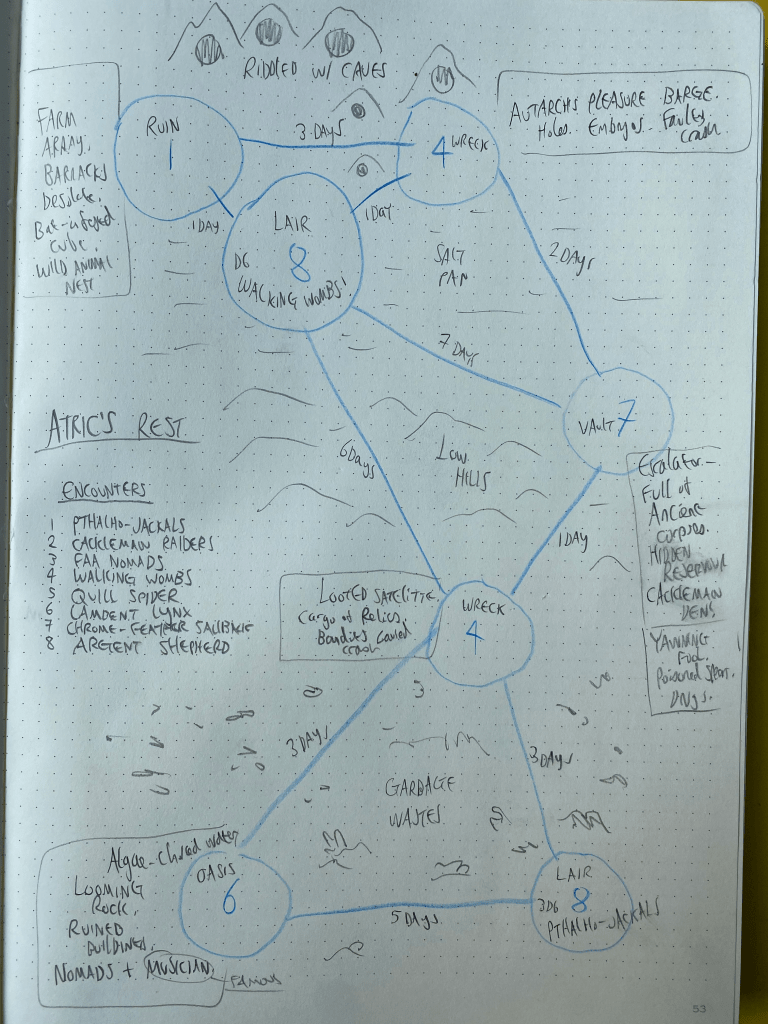 RIDDLED W/ CAVES
FARM
ARRAY.
BARRACKS
Desolate.
Bat-infested
cube.
WILD ANIMAL
NEST
RUIN
1
3 DAYS
4 WRECK
AUTARCH'S PLEASURE BARGE.
Holes. Embryos. Faulty
crash
1 DAY
1 DAY
LAIR
8
D6
WALKING WOMBS!
SALT
PAN
2 DAYS
7 DAYS
VAULT 7
ATRIC'S REST
6 DAYS
LOW
HILLS
Escalator-
Full of
Ancient
corpses.
HIDDEN
RESERVOIR
CACKLEMAW
DENS
YAWNING
Fuel.
Poisoned
Drugs.
ENCOUNTERS
1 PTHALHO-JACKALS
2 CACKLEMAW RAIDERS
3 FAA NOMADS
4 WALKING WOMBS
5 QUILL SPIDER
6 CAMDENT LYNX
7 CHROME-FEATHER
8 ARGENT SHEPHERD
1 DAY
LOOTED SATELITTE
Cargo of Relics,
Bandits caused
crash
WRECK
4
3 DAYS
3 DAYS
GARBAGE
WASTES
Algae-choked water
LOOMING
ROCK.
RUINED
BUILDINGS.
NOMADS + MUSICIAN
Famous
OASIS
6
5 DAYS
LAIR
8
3D6
PTHALHO-JACKALS
53